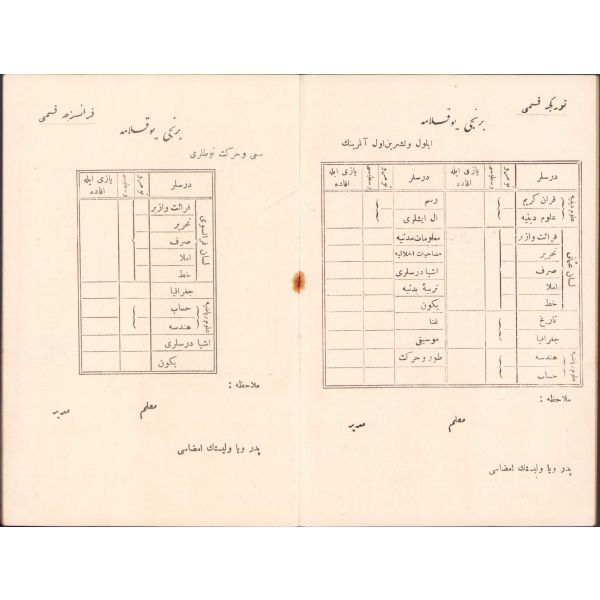 تورکجه قسمی
برنجی یوقلامه
ایلول و تشرین اول آیلرینك
درسلر
نومرو
وسطیسی
یازی ایله افاده
درسلر
نومرو
وسطیسی
یازی ایله افاده
علوم دینیه
قرآن کریم
علوم دینیه
لسان عثمانی
قرائت و ازبر
تحریر
صرف
املا
خط
تاریخ
جغرافیا
علوم ریاضیه
هندسه
حساب
رسم
ال ایشلری
معلومات مدنیه
مصاحبات اخلاقیه
اشیا درسلری
تربیهٔ بدنیه
یکون
غنا
موسیقی
طور و حرکت
ملاحظه :
معلم
مدیر
پدر ویا ولیسنك امضاسی
فرانسزجه قسمی
برنجی یوقلامه
سعی و حرکت نوطلری
درسلر
نومرو
وسطیسی
یازی ایله افاده
لسان فرانسوی
قرائت و ازبر
تحریر
صرف
املا
خط
جغرافیا
علوم ریاضیه
حساب
هندسه
اشیا درسلری
یکون
ملاحظه :
معلم
مدیر
پدر ویا ولیسنك امضاسی